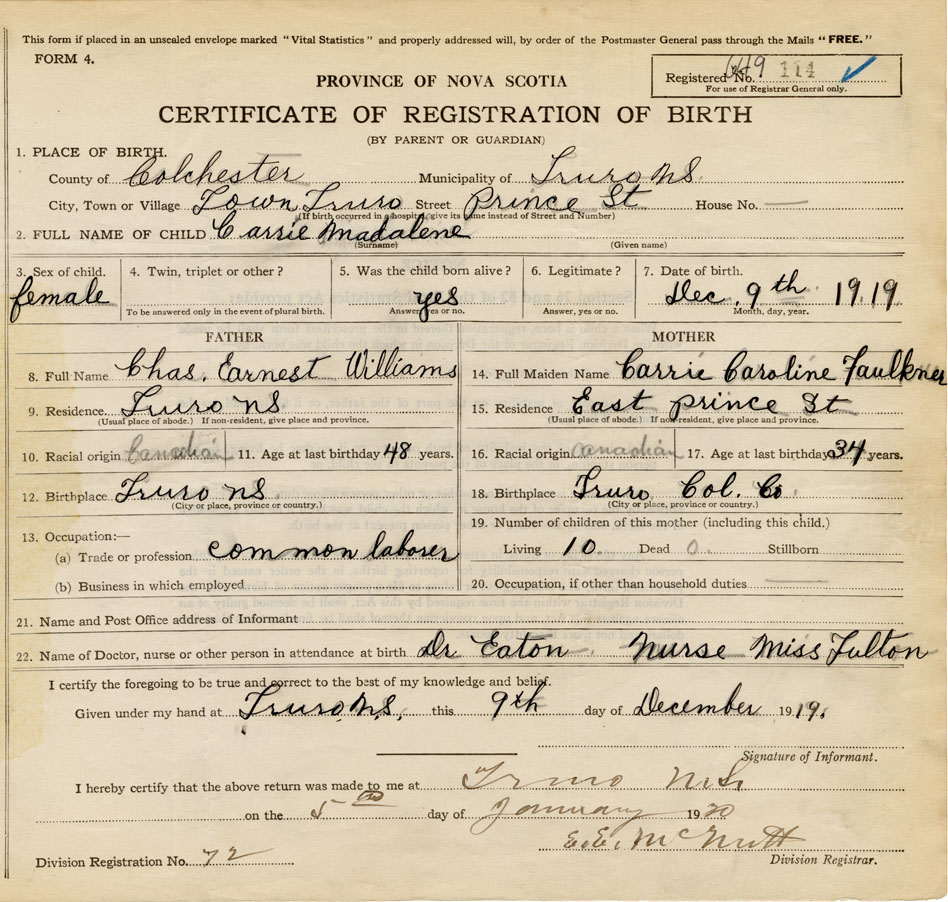 This form if placed in an unsealed envelope marked "Vital Statistics" and properly addressed will, by order of the Postmaster General pass through the Mails "FREE."
FORM 4.
Registered No. 649 114
For use of Registrar General only.
PROVINCE OF NOVA SCOTIA
CERTIFICATE OF REGISTRATION OF BIRTH
(BY PARENT OR GUARDIAN)
1. PLACE OF BIRTH.
County of Colchester Municipality of Truro NS.
City, Town or Village Town Truro Street Prince St House No. —
(If birth occurred in a hospital, give its name instead of Street and Number)
2. FULL NAME OF CHILD Carrie Madalene
(Surname) (Given name)
3. Sex of child. 4. Twin, triplet or other? 5. Was the child born alive? 6. Legitimate? 7. Date of birth.
female yes Dec. 9th 1919
To be answered only in the event of plural birth. Answer, yes or no. Answer, yes or no. Month, day, year.
FATHER MOTHER
8. Full Name Chas. Earnest Williams 14. Full Maiden Name Carrie Caroline Faulkner
9. Residence Truro NS 15. Residence East Prince St
(Usual place of abode.) If non-resident, give place and province. (Usual place of abode.) If non-resident, give place and province.
10. Racial origin Canadian 11. Age at last birthday 48 years. 16. Racial origin Canadian 17. Age at last birthday 34 years.
12. Birthplace Truro NS 18. Birthplace Truro Col. Co.
(City or place, province or country.) (City or place, province or country.)
13. Occupation:— 19. Number of children of this mother (including this child.)
(a) Trade or profession common laborer Living 10. Dead 0. Stillborn
(b) Business in which employed 20. Occupation, if other than household duties —
21. Name and Post Office address of Informant
22. Name of Doctor, nurse or other person in attendance at birth Dr Eaton Nurse Miss Fulton
I certify the foregoing to be true and correct to the best of my knowledge and belief.
Given under my hand at Truro N.S., this 9th day of December 1919.
Signature of Informant.
I hereby certify that the above return was made to me at Truro N.S.
on the 5th day of January 1920
E.E. McNutt
Division Registration No. 72 Division Registrar.